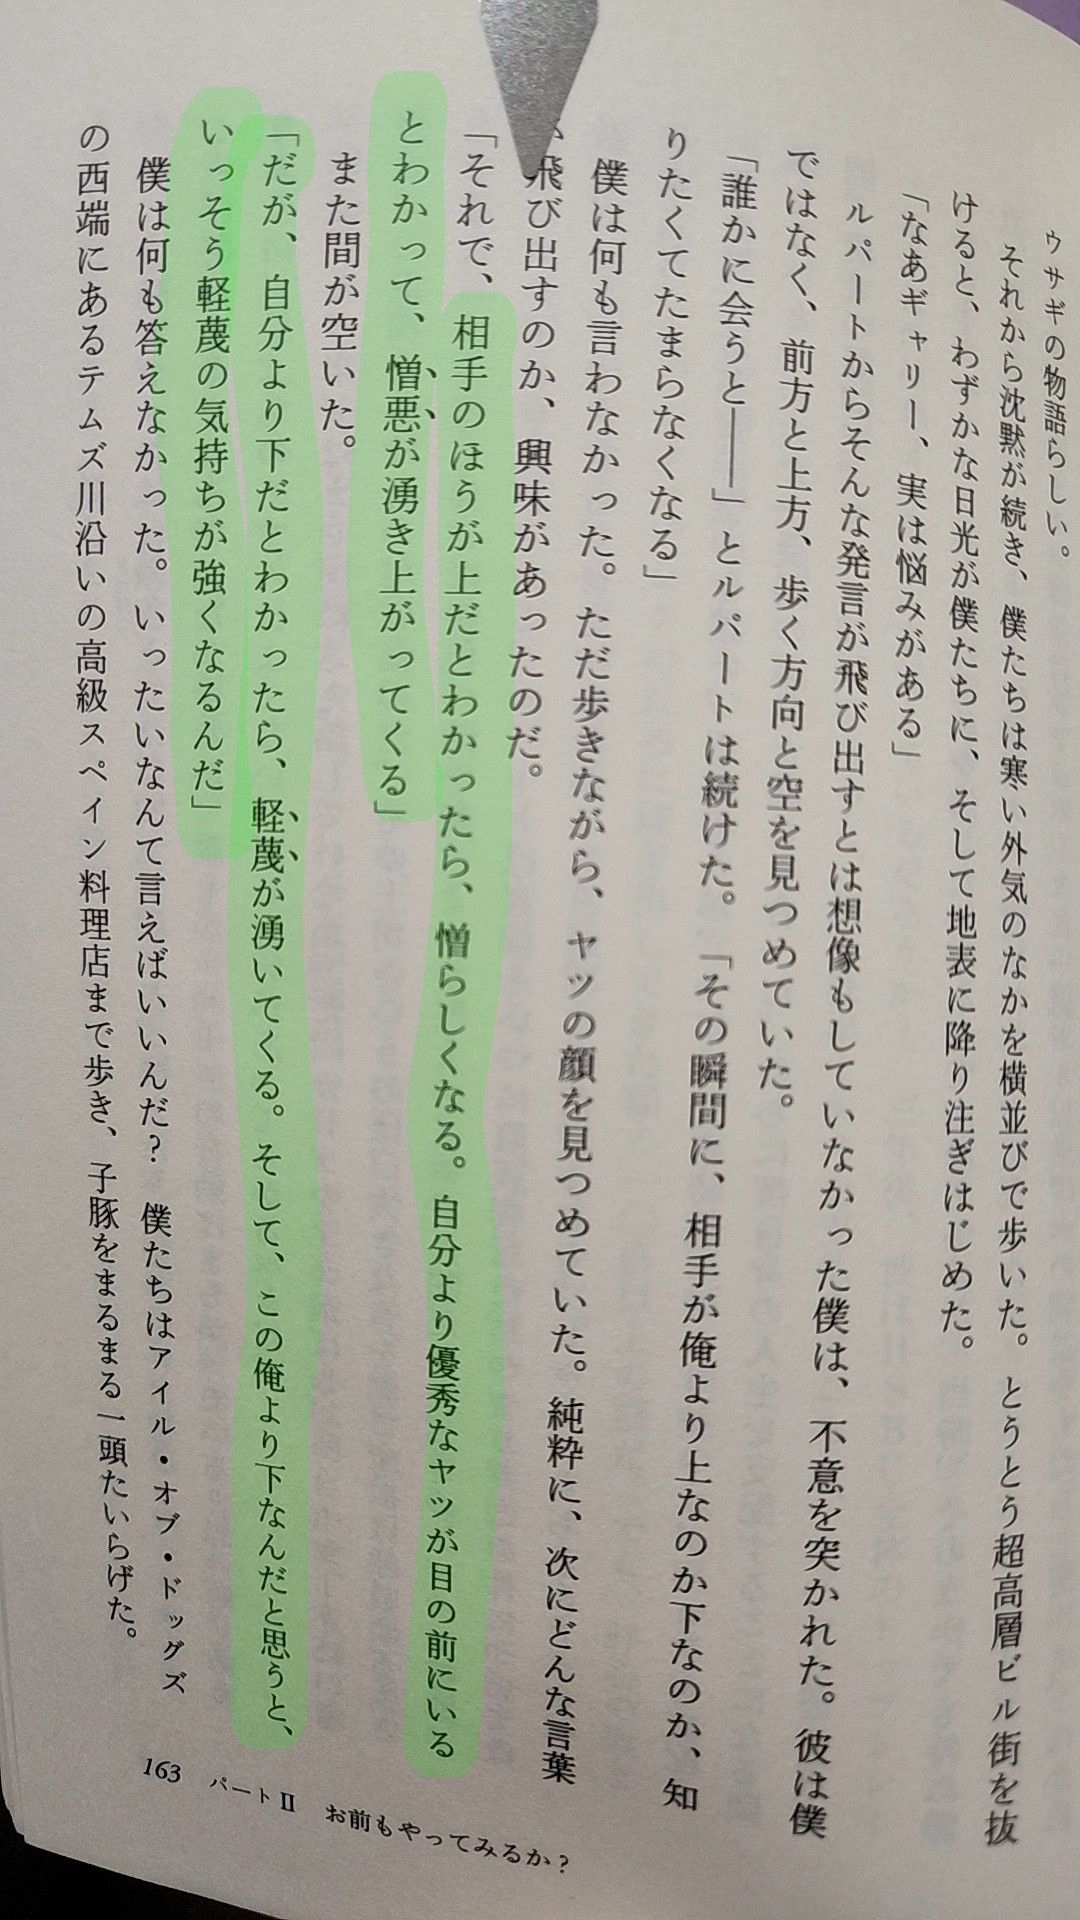 ウサギの物語らしい。
それから沈黙が続き、僕たちは寒い外気のなかを横並びで歩いた。とうとう超高層ビル街を抜
けると、わずかな日光が僕たちに、そして地表に降り注ぎはじめた。
「なあギャリー、実は悩みがある」
ルパートからそんな発言が飛び出すとは想像もしていなかった僕は、不意を突かれた。彼は僕
ではなく、前方と上方、歩く方向と空を見つめていた。
「誰かに会うと――」とルパートは続けた。「その瞬間に、相手が俺より上なのか下なのか、知
りたくてたまらなくなる」
僕は何も言わなかった。ただ歩きながら、ヤツの顔を見つめていた。純粋に、次にどんな言葉
飛び出すのか、興味があったのだ。
「それで、相手のほうが上だとわかったら、憎らしくなる。自分より優秀なヤツが目の前にいる
とわかって、憎悪が湧き上がってくる」
また間が空いた。
「だが、自分より下だとわかったら、軽蔑が湧いてくる。そして、この俺より下なんだと思うと、
いっそう軽蔑の気持ちが強くなるんだ」
僕は何も答えなかった。いったいなんて言えばいいんだ？　僕たちはアイル・オブ・ドッグズ
の西端にあるテムズ川沿いの高級スペイン料理店まで歩き、子豚をまるまる一頭たいらげた。
163　パートⅡ　お前もやってみるか？